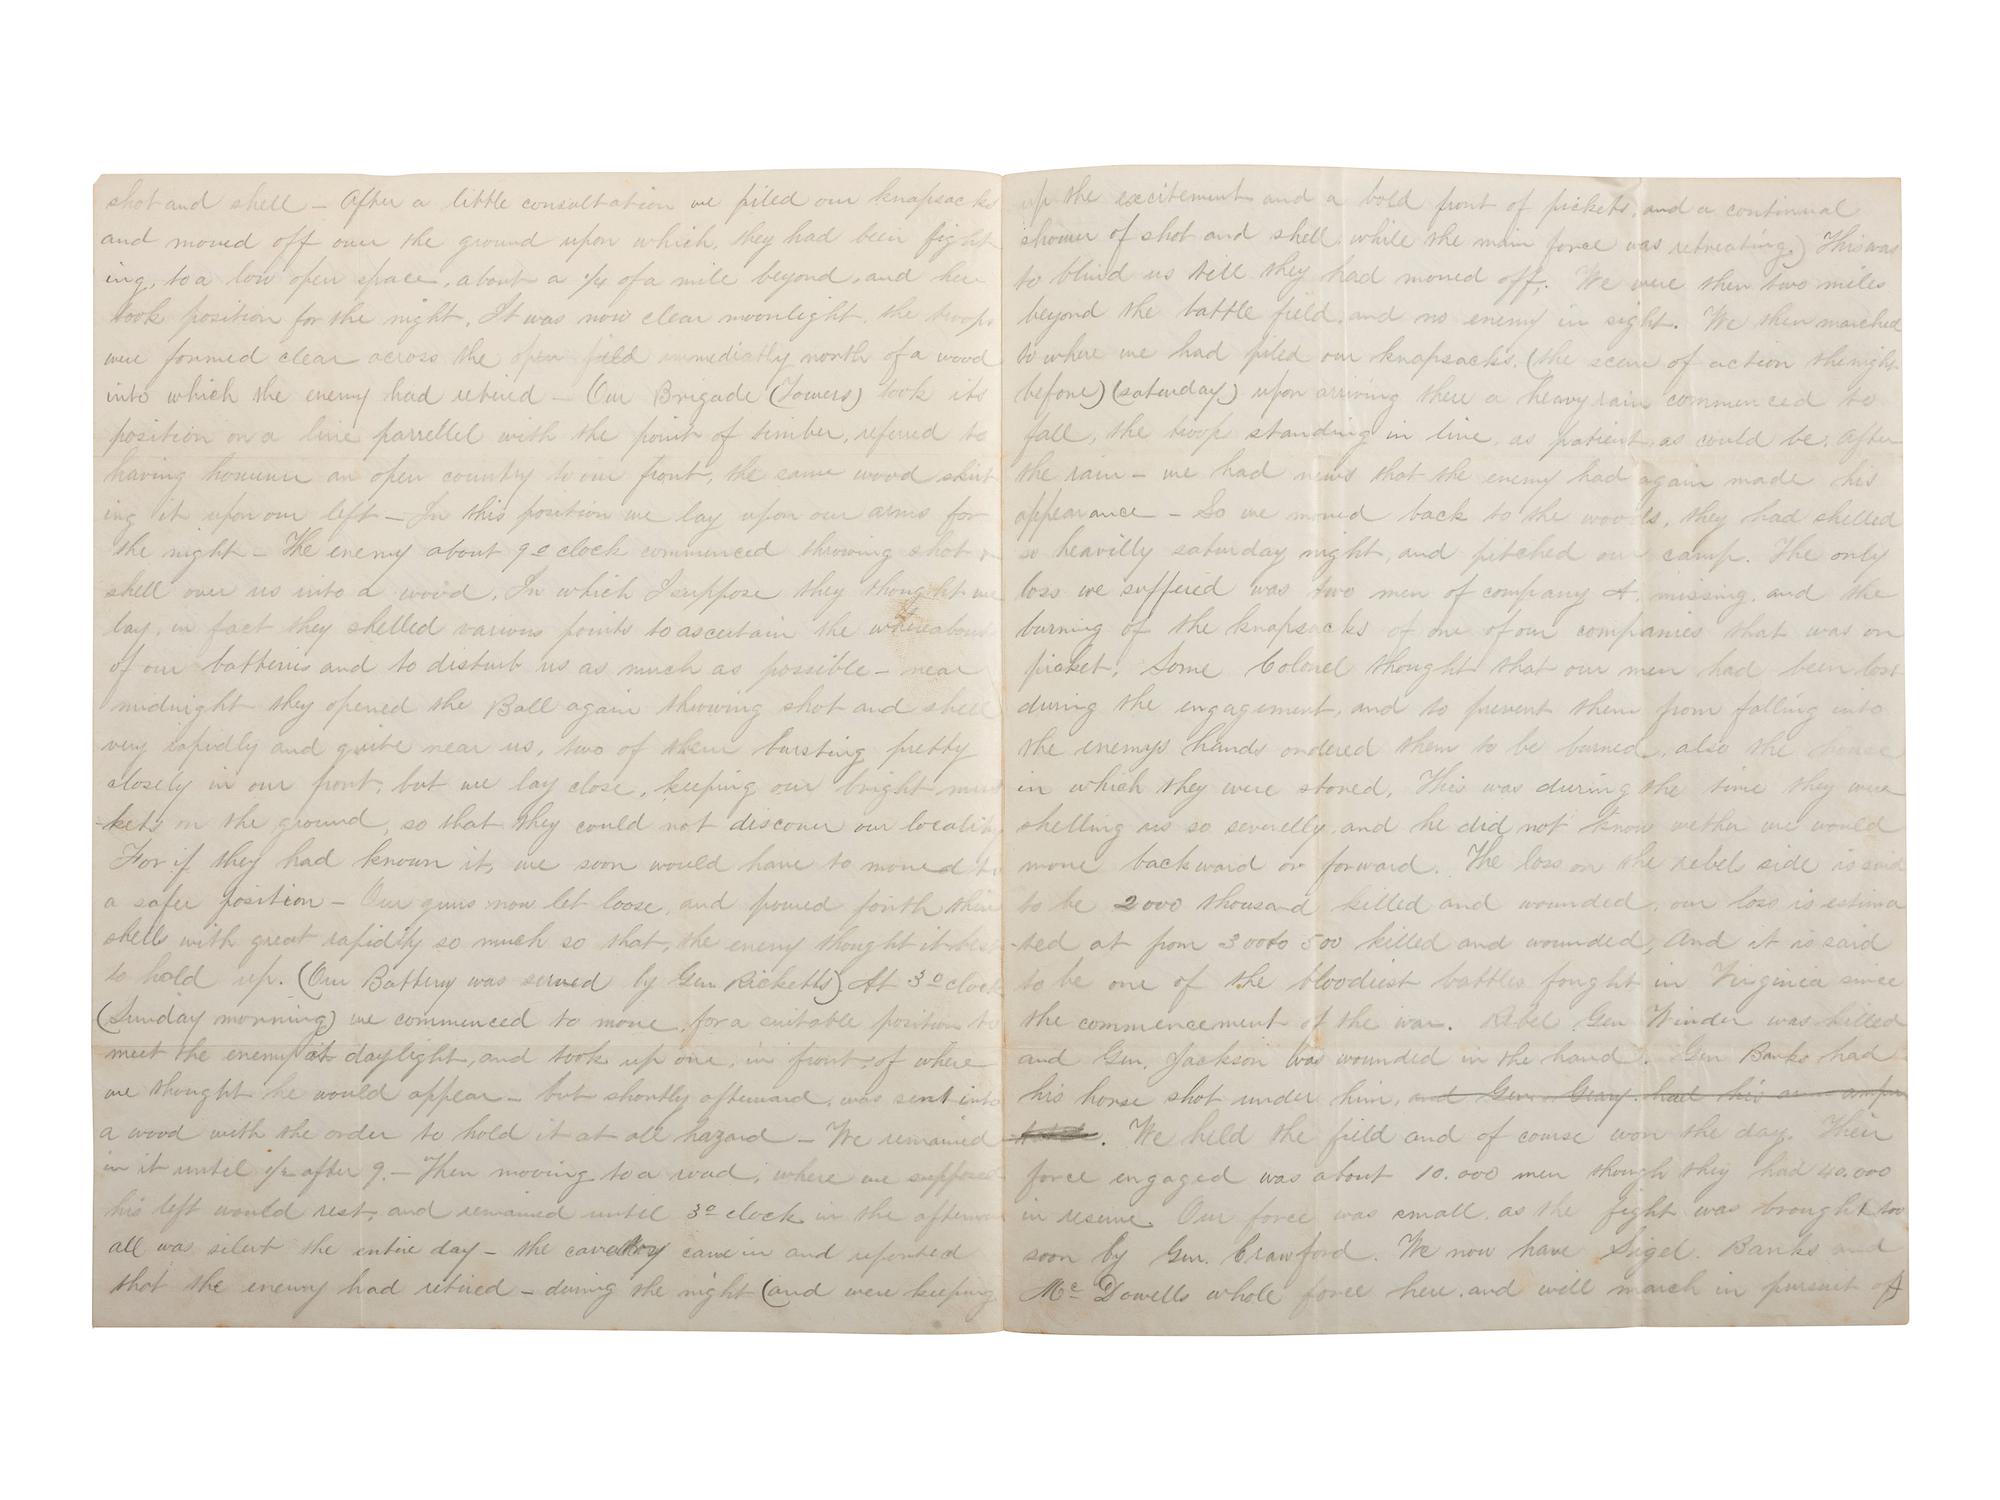 shot and shell – After a little consultation we piled our knapsacks
and moved off over the ground upon which, they had been fight
ing, to a low open space, about a 1/4 of a mile beyond, and here
took position for the night. It was now clear moonlight. the troops
were formed clear across the open field immediatly north of a wood
into which the enemy had retired – Our Brigade (Towers) took its
position on a line parrellel with the point of timber, referred to
having however an open country to our front, the same wood skirt
ing it upon our left – In this position we lay upon our arms for
the night – The enemy about 9 o clock commenced throwing shot &
shell over us into a wood, In which I suppose they thought we
lay, in fact they shelled various points to ascertain the whereabouts
of our batteries and to disturb us as much as possible – near
midnight they opened the Ball again throwing shot and shell
very rapidly and quite near us, two of them bursting pretty
closely in our front, but we lay close, keeping our bright mus
-kets on the ground, so that they could not discover our locality
For if they had known it, we soon would have to moved to
a safer position – Our guns now let loose, and poured forith their
shells with great rapidity so much so that, the enemy thought it best
to hold up. (Our Battery was served by Gen Ricketts) At 3 o clock
(Sunday morning) we commenced to move, for a suitable position to
meet the enemy at daylight, and took up one, in front, of where
we thought he would appear – but shortly afterward, was sent into
a wood with the order to hold it at all hazard – We remained
in it until 1/2 after 9. – Then moving to a road, where we supposed
his left would rest, and remained until 3 o clock in the afternoon
all was silent the entire day – the cavalry came in and reported
that the enemy had retired – during the night (and were keeping
up the excitement and a bold front of pickets, and a continual
shower of shot and shell while the main force was retreating.) This was
to blind us till they had moved off. We were then two miles
beyond the battle field, and no enemy in sight. We then marched
to where we had piled our knapsacks. (the scene of action the night
before) (saturday) upon arriving there a heavy rain commenced to
fall, the troop standing in line, as patient, as could be. After
the rain – we had news that the enemy had again made his
appearance – So we moved back to the woods, they had shelled
so heavilly saturday night, and pitched our camp. The only
loss we suffered was two men of company A, missing, and the
burning of the knapsacks of one of our companies that was on
picket. Some Colonel thought that our men had been lost
during the engagement, and to prevent them from falling into
the enemys hands ordered them to be burned, also the house
in which they were stored, This was during the time they were
shelling us so severelly, and he did not know wether we would
move backward or forward. The loss on the rebel side is said
to be 2000 thousand killed and wounded, our loss is estima
-ted at from 300 to 500 killed and wounded, And it is said
to be one of the bloodiest battles fought in Virginia since
the commencement of the war. Rebel Gen Winder was killed
and Gen. Jackson was wounded in the hand. Gen Banks had
his horse shot under him, and Gen. Geary had his arm ampu
. We held the field and of course won the day. Their
force engaged was about 10.000 men though they had 40.000
in reserve Our force was small as the fight was brought too
soon by Gen. Crawford. We now have Sigel. Banks and
Mc Dowells whole force here, and will march in pursuit of